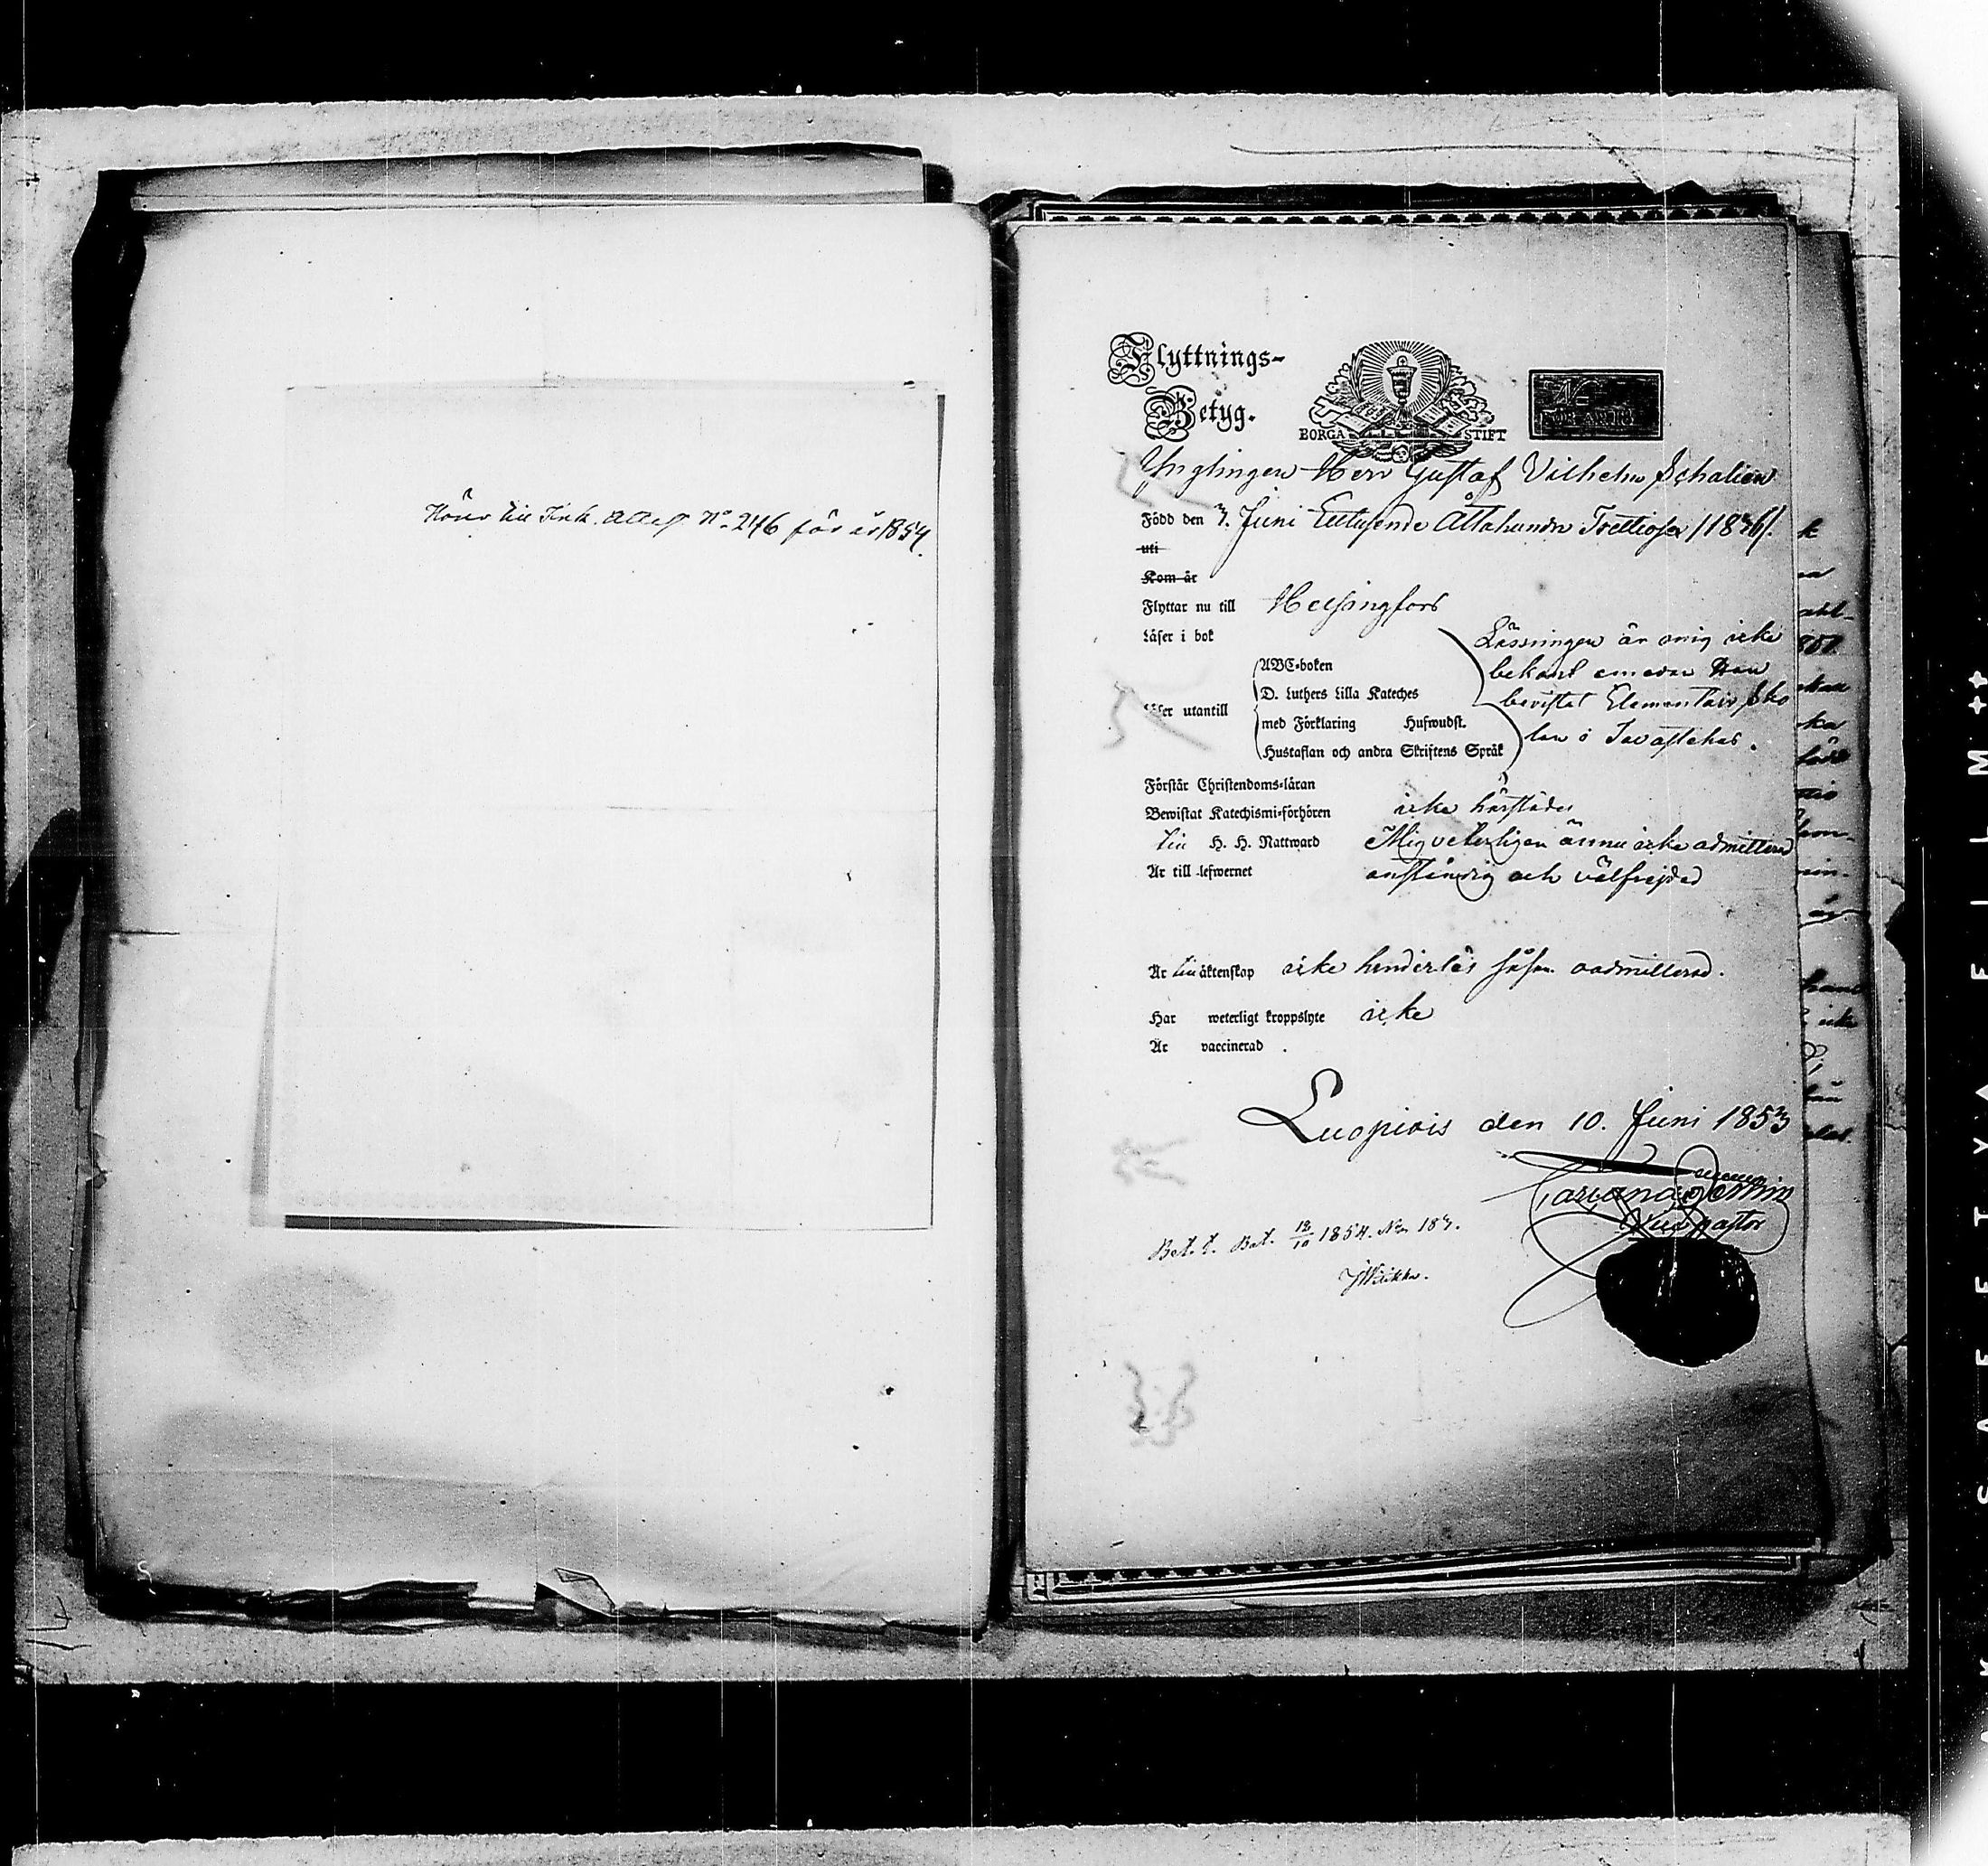 Hörer till Ink. Attest No 246 för år 1854.
Flyttnings-
Betyg.
BORGA STIFT
Ynglingen Herr Gustaf Vilhelm Schalien
Född den 7. Juni Ettusende Åttahundra Trettiosex /1836/.
uti
Kom år
Flyttar nu till Helsingfors
Läser i bok
Läsningen är mig icke
bekant emedan Han
bevistat Elementair Sko
lan i Tavastehus.
ABC-boken
D. Luthers Lilla Kateches
Läser utantill
med Förklaring Hufwudst.
Hustaflan och andra Skriftens Språk
Förstår Christendoms-läran
Bewistat Katechismi-förhören icke härstädes
till H. H. Nattward Mig veterligen ännu icke admitterad
Är till lefwernet anständig och välfrejdad
Är till äktenskap icke hinderlös såsom oadmitterad.
Har weterligt kroppslyte icke
Är vaccinerad .
Luopiois den 10. Juni 1853
Vice pastor
Bet. t. Bat. 12/10 1854. No 187.
K I F I L M ++